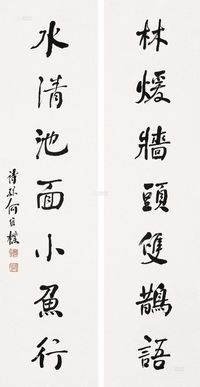 林煖牆頭雙鵲語
水清池面小魚行
詩孫何維樸